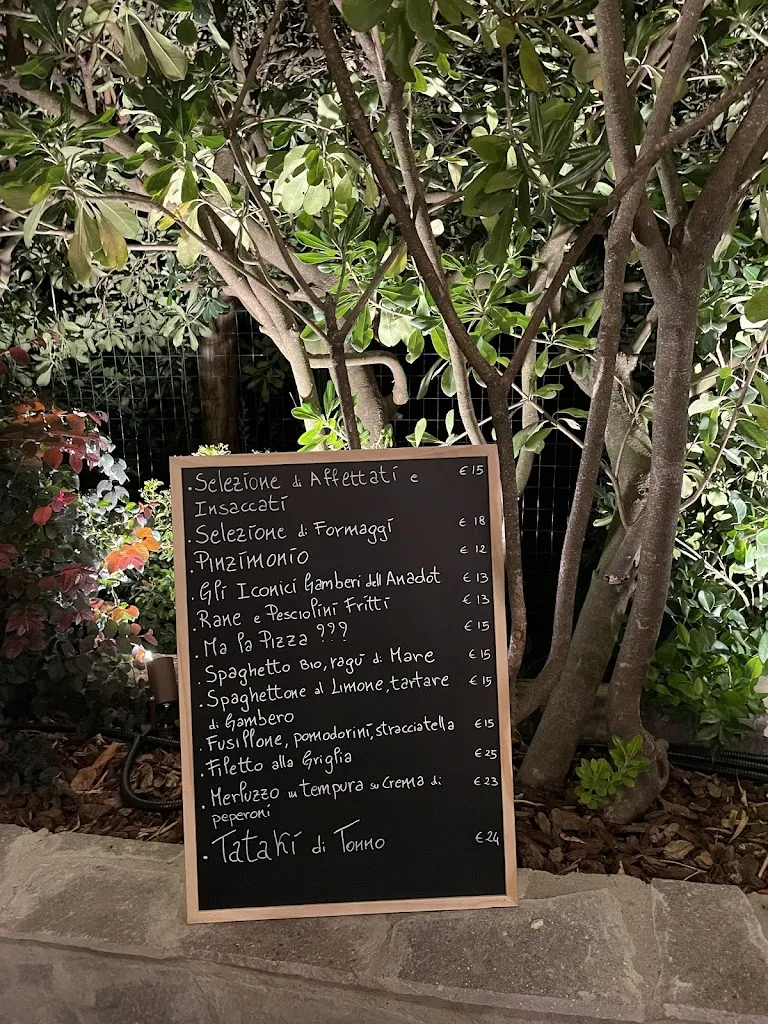 .Selezione di Affettati e €15
Insaccati
.Selezione di Formaggi €18
.Pinzimonio €12
.Gli Iconici Gamberi dell Anadot €13
.Rane e Pesciolini Fritti €13
.Ma la Pizza ??? €15
.Spaghetto Bio, ragù di Mare €15
.Spaghettone al Limone, tartare €15
di Gambero
.Fusillone, pomodorini, stracciatella €15
.Filetto alla Griglia €25
.Merluzzo in tempura su Crema di €23
peperoni
.Tataki di Tonno €24